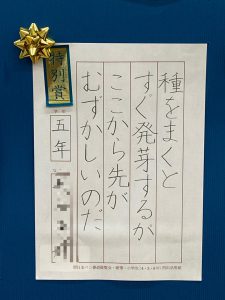 種をまくと
すぐ発芽するが
ここから先が
むずかしいのだ
特別賞
五年